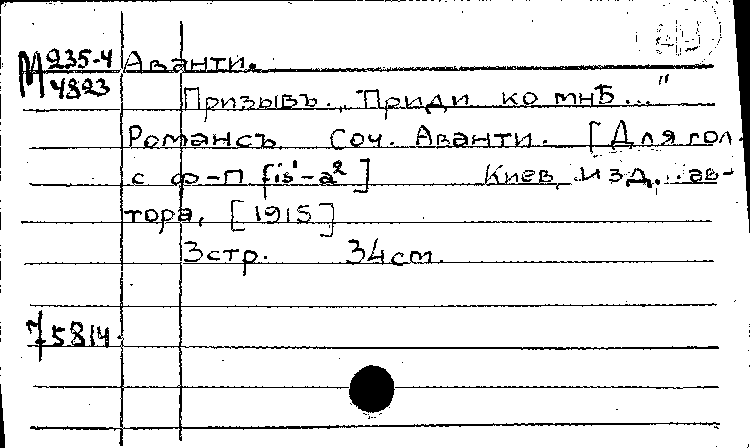 М 235-4 Аванти.
4823
Призывъ. „Приди ко мнѣ..."
Романсъ. Соч. Аванти. [Для гол.
с ф-п fis'-a²] Киев, изд. ав-
тора, [1915]
3стр. 34см.
75814